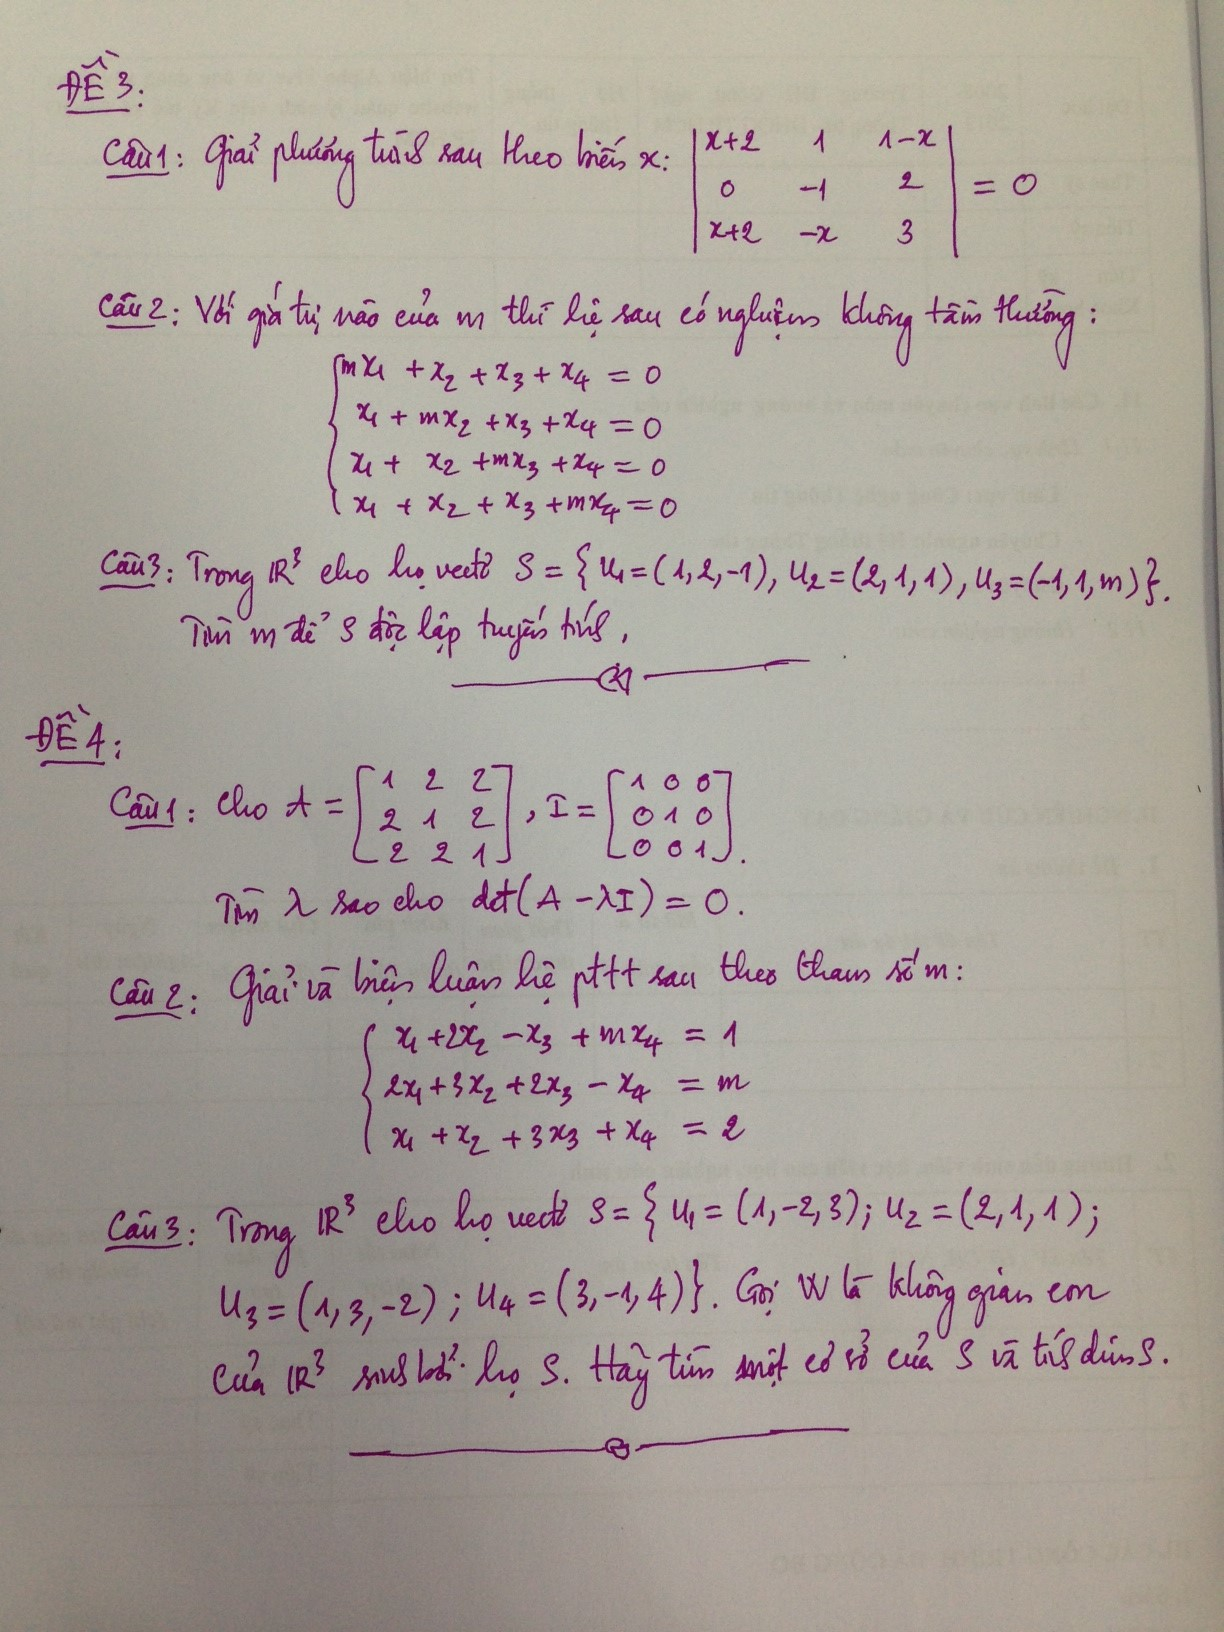 ĐỀ 3:
Câu 1: Giải phương trình sau theo biến x: | x+2 1 1-x |
| 0 -1 2 | = 0
| x+2 -x 3 |
Câu 2: Với giá trị nào của m thì hệ sau có nghiệm không tầm thường:
mx₁ + x₂ + x₃ + x₄ = 0
x₁ + mx₂ + x₃ + x₄ = 0
x₁ + x₂ + mx₃ + x₄ = 0
x₁ + x₂ + x₃ + mx₄ = 0
Câu 3: Trong ℝ³ cho họ vectơ S = { u₁ = (1, 2, -1), u₂ = (2, 1, 1), u₃ = (-1, 1, m) }.
Tìm m để S độc lập tuyến tính.
ĐỀ 4:
Câu 1: Cho A = [ 1 2 2 ] , I = [ 1 0 0 ]
[ 2 1 2 ] [ 0 1 0 ]
[ 2 2 1 ] [ 0 0 1 ].
Tìm λ sao cho det(A - λI) = 0.
Câu 2: Giải và biện luận hệ pttt sau theo tham số m:
x₁ + 2x₂ - x₃ + mx₄ = 1
2x₁ + 3x₂ + 2x₃ - x₄ = m
x₁ + x₂ + 3x₃ + x₄ = 2
Câu 3: Trong ℝ³ cho họ vectơ S = { u₁ = (1, -2, 3); u₂ = (2, 1, 1);
u₃ = (1, 3, -2); u₄ = (3, -1, 4) }. Gọi W là không gian con
của ℝ³ sinh bởi họ S. Hãy tìm một cơ sở của S và tính dim S.